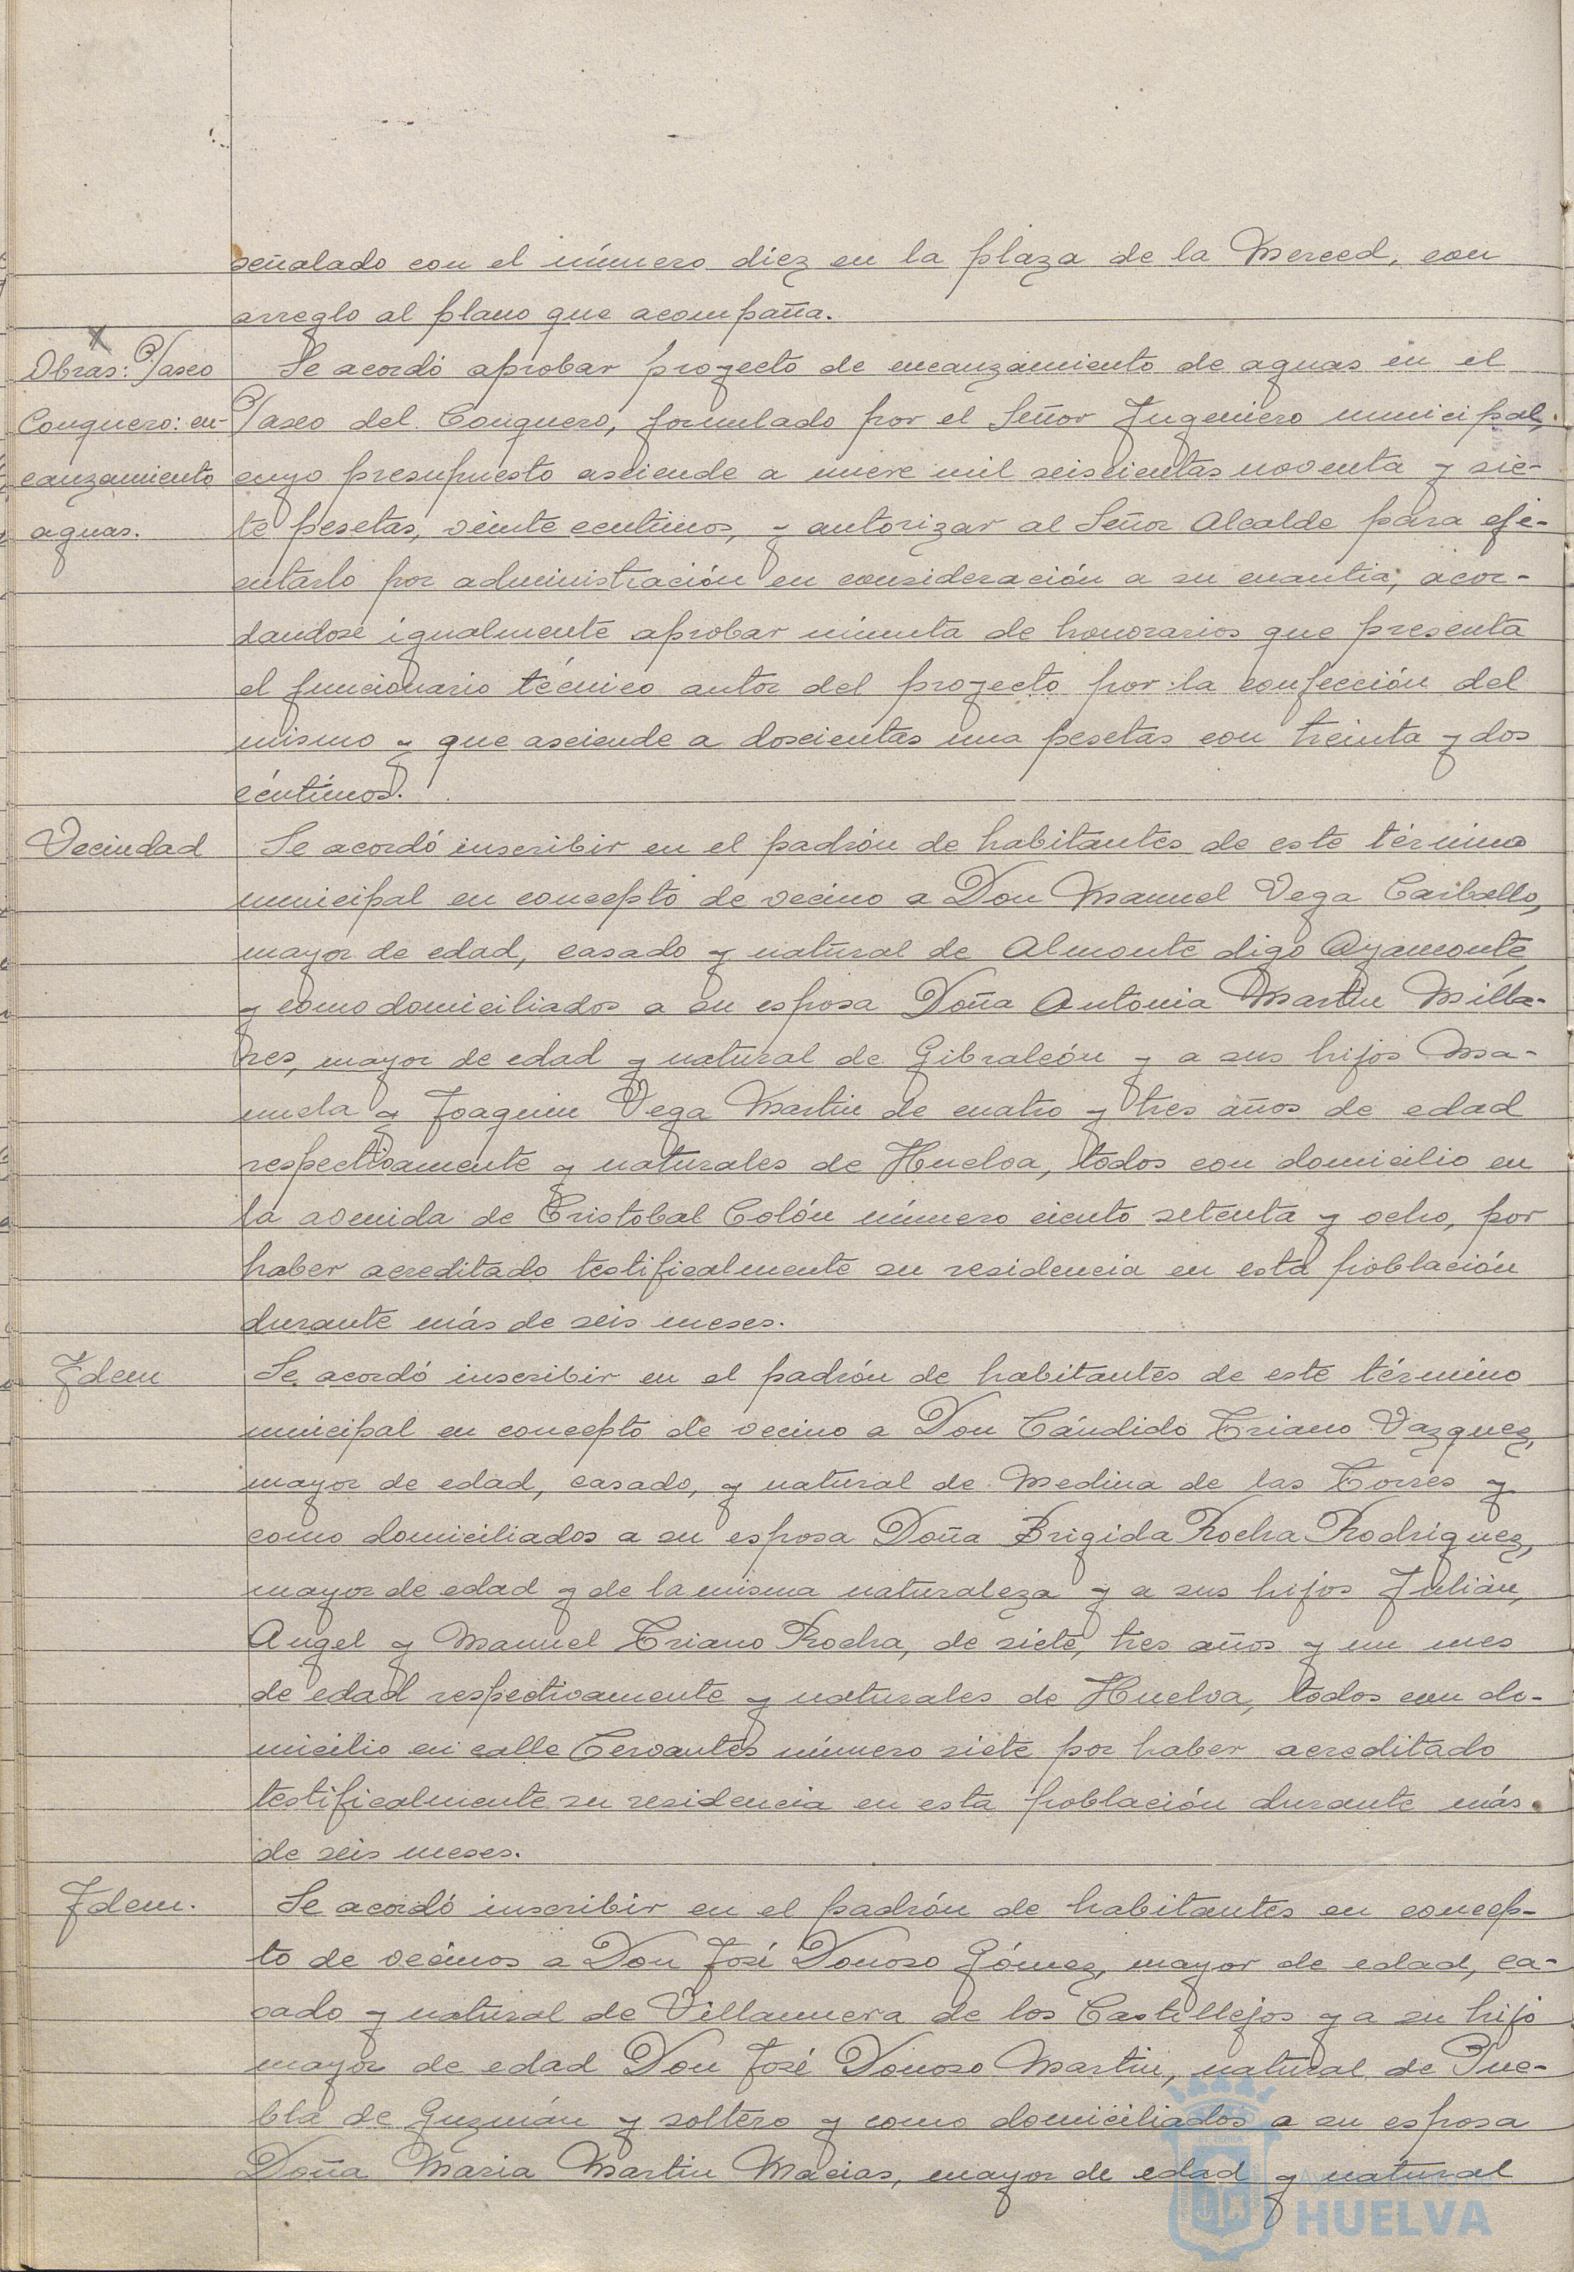 señalado con el número diez en la plaza de la Merced, con
arreglo al plano que acompaña.
Obras: Paseo
Conquero: en-
cauzamiento
aguas.
Se acordó aprobar proyecto de encauzamiento de aguas en el
Paseo del Conquero, formulado por el Señor Ingeniero municipal,
cuyo presupuesto asciende a nueve mil seiscientas noventa y sie-
te pesetas, veinte centimos, y autorizar al Señor Alcalde para eje-
cutarlo por administración en consideración a su cuantia, acor-
dandose igualmente aprobar minuta de honorarios que presenta
el funcionario técnico autor del proyecto por la confección del
mismo y que asciende a doscientas una pesetas con treinta y dos
céntimos.
Vecindad
Se acordó inscribir en el padrón de habitantes de este término
municipal en concepto de vecino a Don Manuel Vega Carballo,
mayor de edad, casado y natural de Almonte digo Ayamonte
y como domiciliados a su esposa Doña Antonia Martin Milla-
res, mayor de edad y natural de Gibraleón y a sus hijos Ma-
nuela y Joaquin Vega Martin de cuatro y tres años de edad
respectivamente y naturales de Huelva, todos con domicilio en
la avenida de Cristobal Colón número ciento setenta y ocho, por
haber acreditado testificalmente su residencia en esta población
durante más de seis meses.
Idem
Se acordó inscribir en el padrón de habitantes de este término
municipal en concepto de vecino a Don Cándido Triano Vazquez,
mayor de edad, casado, y natural de Medina de las Torres y
como domiciliados a su esposa Doña Brigida Rocha Rodriguez,
mayor de edad y de la misma naturaleza y a sus hijos Julián,
Angel y Manuel Triano Rocha, de siete, tres años y un mes
de edad respectivamente y naturales de Huelva, todos con do-
micilio en calle Cervantes número siete por haber acreditado
testificalmente su residencia en esta población durante más
de seis meses.
Idem.
Se acordó inscribir en el padrón de habitantes en concep-
to de vecinos a Don José Donoso Gómez, mayor de edad, ca-
sado y natural de Villanueva de los Castillejos y a su hijo
mayor de edad Don José Donoso Martin, natural de Pue-
bla de Guzmán y soltero y como domiciliados a su esposa
Doña Maria Martin Macias, mayor de edad y natural
HUELVA